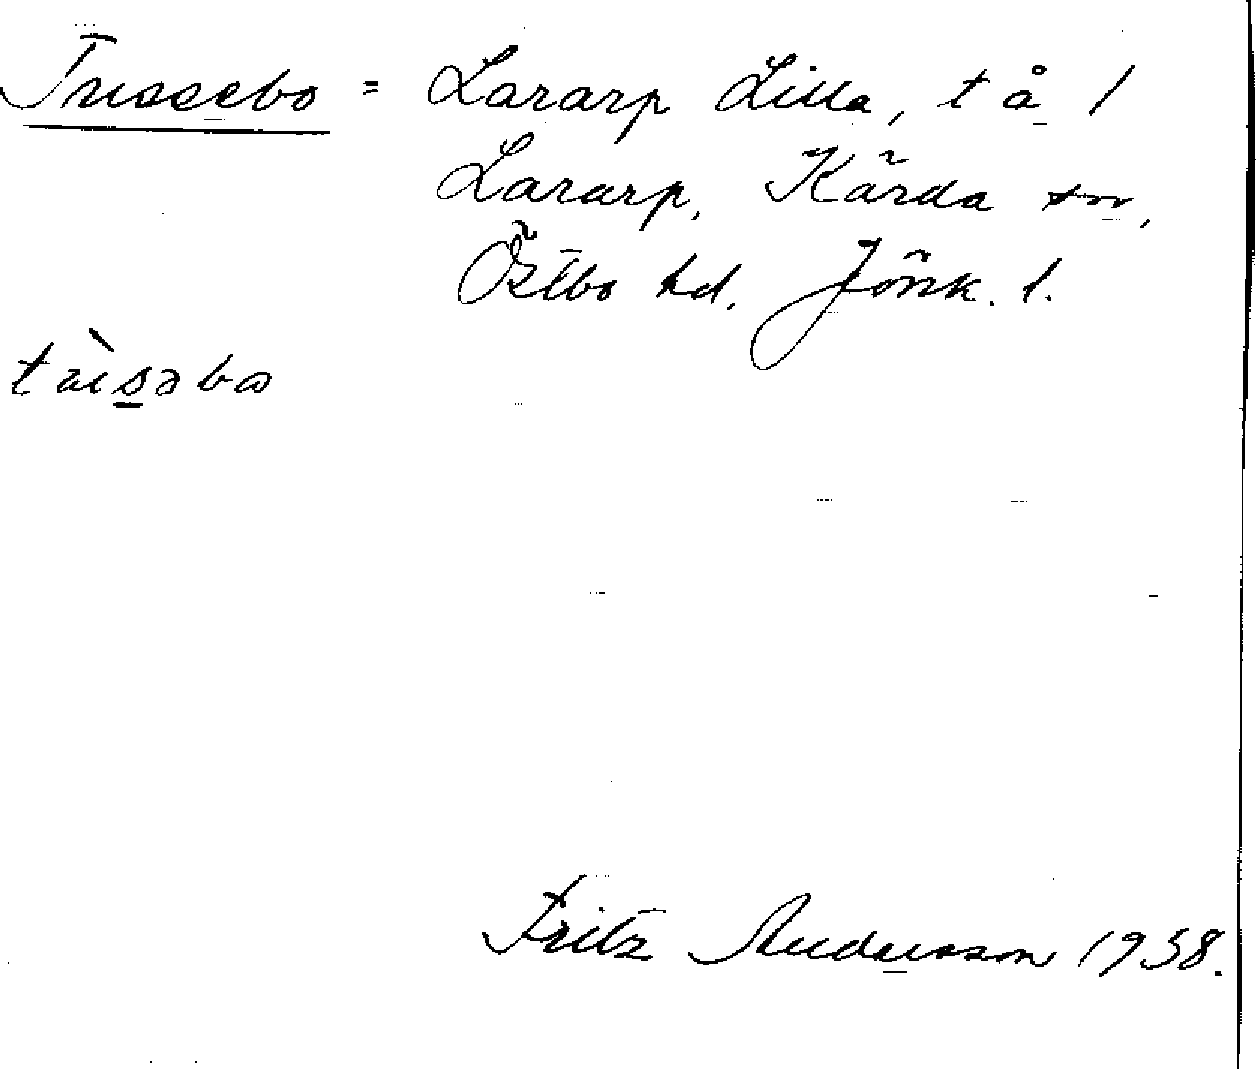 Trussebo = Lararp Lilla, t å 1
Lararp, Kärda sn,
Östbo hd. Jönk. l.
Fritz Andersson 1938.